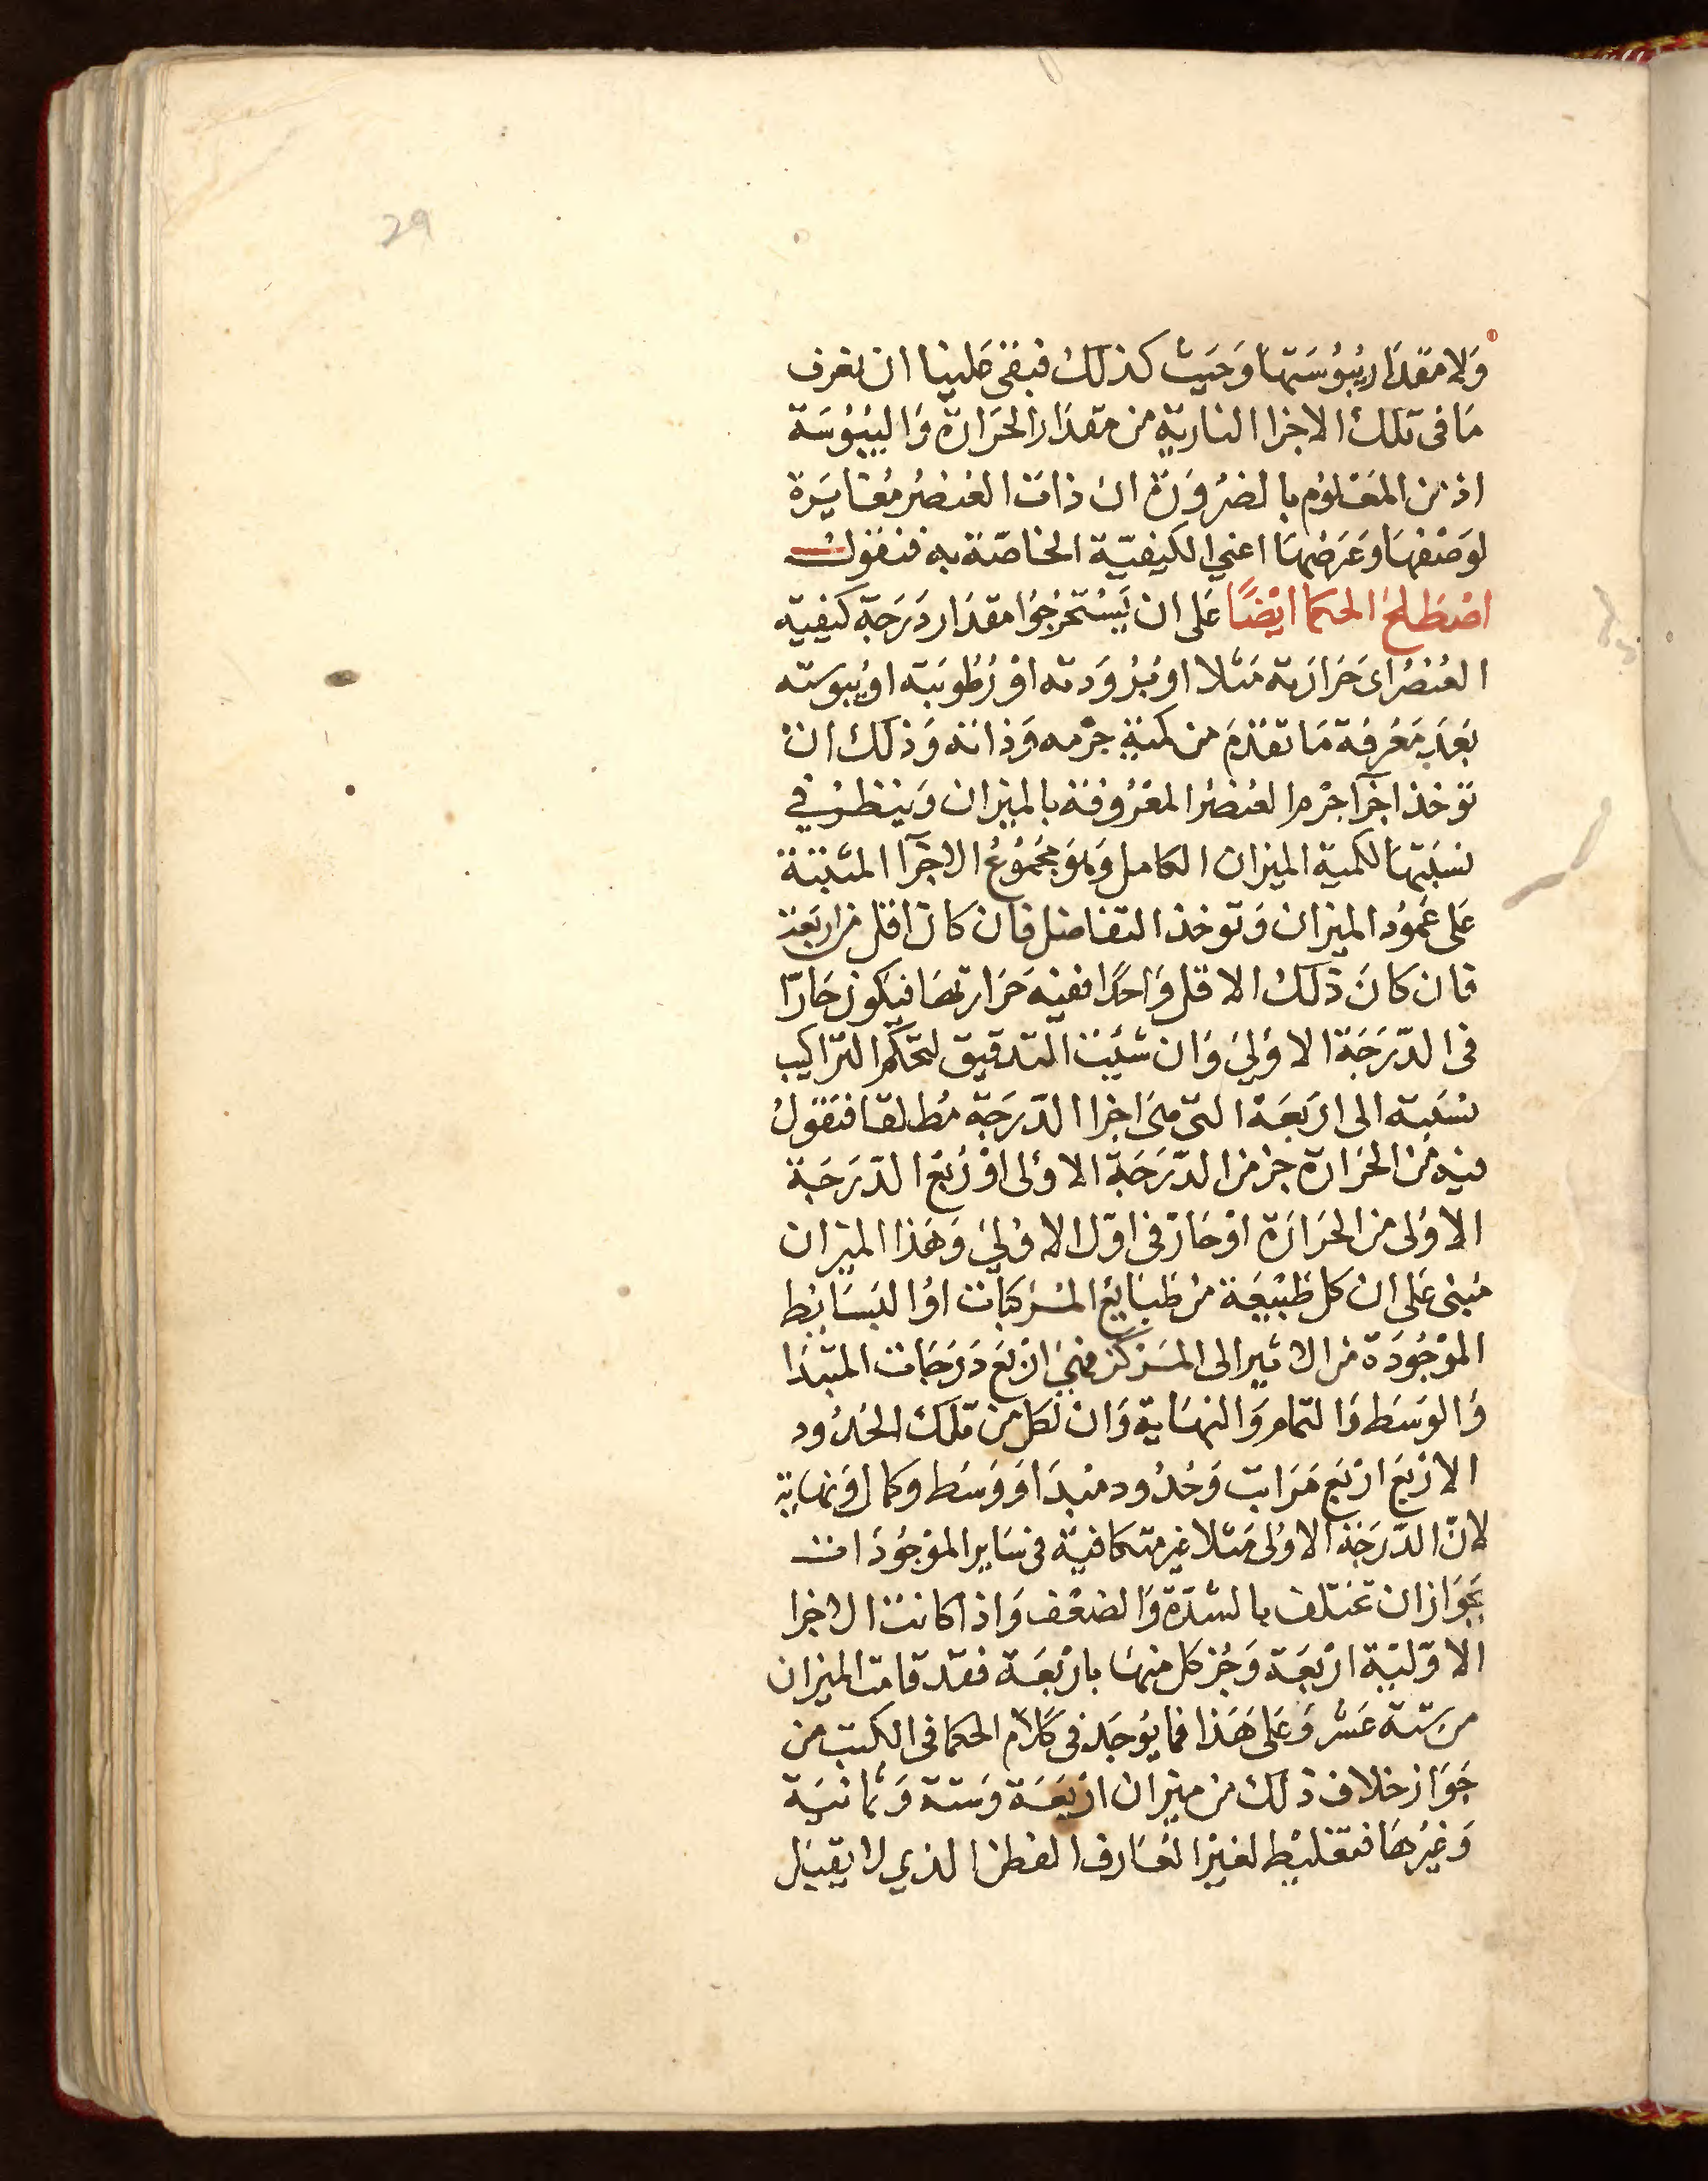 29
وَلا مقدَار يبُوُسَتهَا وَحَيَث كذلك فبقى علينا ان نعرف
مَا فى تلك الاجزا النارية من مقدَار الحَرَارة وَاليبُوُسَة
اذ من المعَلوُم بالضرُوَرة ان ذات العُنصُر مُغايَرة
لوَصْفهَا وَعَرَضهَا اعني الكيفيّة الخاصّة به فنقول
اصْطَلحَ الحكما ايْضًا عَلى ان يَسْتخرِجُوا مقدَار دَرَجَة كيفية
العُنصُر اى حَرَارَته مَثلا او بُرُوَدته اوْ رُطُوبَته او يُبوسته
بَعَد مَعْرفة مَا تقدّمَ من كمية جرْمه وَذاته وَذلك ان
توخذ اجزآ جرْم العُنصُر المعْرُوفة بالميزان وَينظر في
نسبَتهَا لكمية الميزان الكامل وَهوَ مجمُوُعُ الاجزآ المثبتة
عَلى عَموُد الميزان وَتوخذ التفاضل فان كان اقل من اربَعَة
فان كانَ ذلك الاقل وَاحدًا ففيه حَرَارة مَا فيَكون حَارّا
فى الدّرَجَة الاوُلىَ وَان شئت التدقيق لتحكم التراكيب
نسَبته الى ارَبَعَة التى هىَ اجزا الدّرَجَة مُطلقا فتقولُ
فيه مْن الحَرَارة جز من الدّرَجَة الاوُلى اوْ رُبْع الدّرَجَة
الاوُلى من الحَرَارَة اوْ حَارّ فى اوّل الاوُلىَ وَهَذا الميزان
مُبنى عَلى ان كل طَبْيعَة مْن طَبَايعُ المرَكبَات اوُ البَسَايط
الموْجُودَة من الاثير الى المرَكز فهىَ ارْبَع دَرَجَات المبْدَا
وَالوسَط وَالتمام وَالنهَاية وَان لكل من تلك الحُدُود
الارْبَع ارْبَع مَرَاتب وَحُدُود مبْدَا وَوَسَط وكمال وَنهاية
لانّ الدّرَجَة الاوُلى مَثلا غير متكافية فى سَاير الموْجُودَات
بجَوَاز ان تختلف بالشدّة وَالضعْف وَاذا كانت الاجزا
الاوّليّة ارْبَعَة وَجُز كل منهَا بارْبَعَة فقد قامت الميزان
من ستة عَشر وَعَلى هَذا فما يوُجَد فى كلام الحكما فى الكتب من
جَوَاز خلاف ذلك من ميزان ارْبَعَة وَستة وَثمانيَة
وَغيْرهَا فتغليْط لغيْر العَارف الفطن الذي لا يقبَل